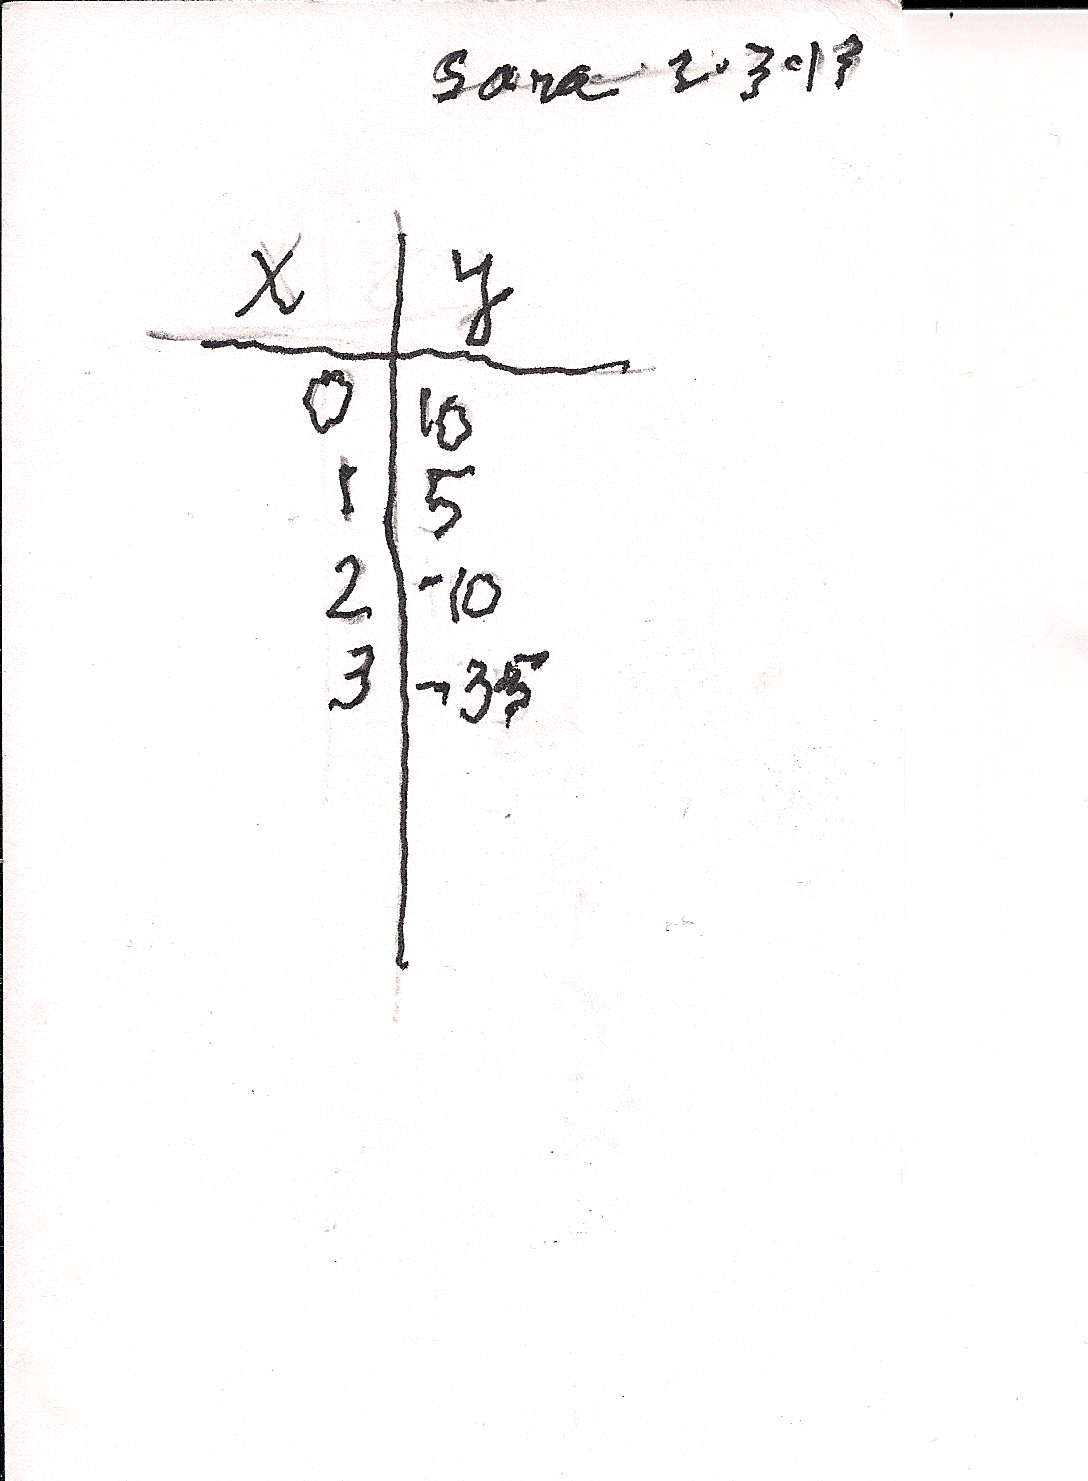 Sara 2.3.13
x y
0 10
1 5
2 -10
3 -35